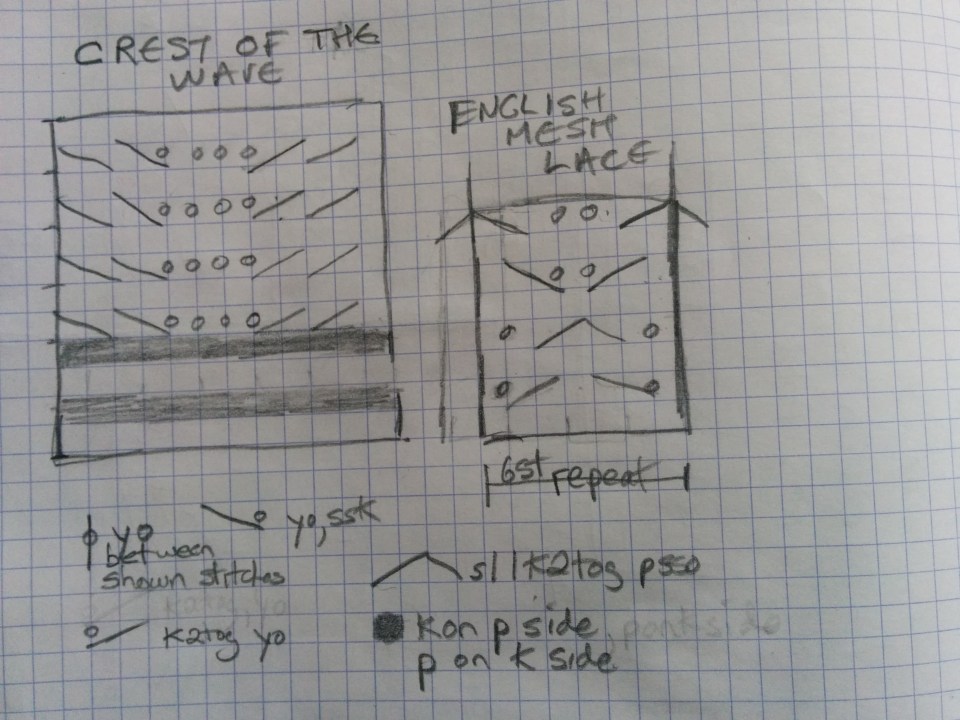 CREST OF THE
WAVE
ENGLISH
MESH
LACE
6st repeat
yo
between
shown stitches
yo, ssk
sl 1 k2tog psso
k2tog yo
K on p side
p on K side